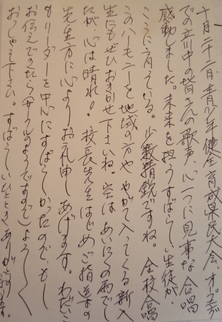 十月二十二日青少年健全育成市民大会、オーエンス
での立川中の皆さんの歌声、心一つに見事な合唱
感動しました。未来を担うすばらしい生徒が
ここに育っている。少数精鋭ですね。全校合唱
このハーモニーを地域の方や やがて入ってくる新入
生にもぜひおきかせ下さいね。空はあいにくの雨でし
たが、心は晴れ! 校長先生はじめご指導の
先生方に心よりお礼申しあげます。
リーダーを中心にすばらしかったので、もし
お伝えできたら
おっしゃって下さい。すばらしいひとときありがとうございます。